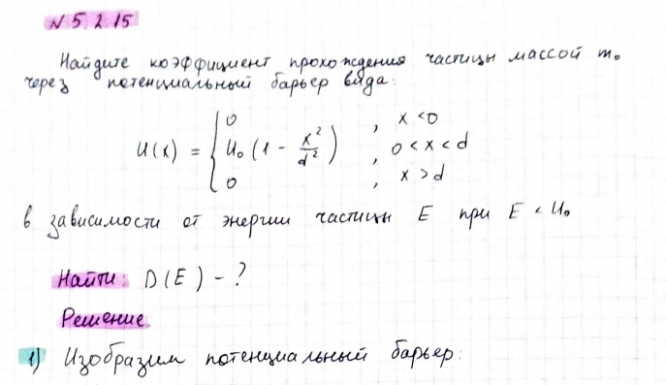 № 5.2.15
Найдите коэффициент прохождения частицы массой m₀
через потенциальный барьер вида:
U(x) = { 0 , x < 0
U₀ (1 - x²/d²) , 0 < x < d
0 , x > d
в зависимости от энергии частицы E при E < U₀
Найти: D(E) - ?
Решение
1) Изобразим потенциальный барьер: